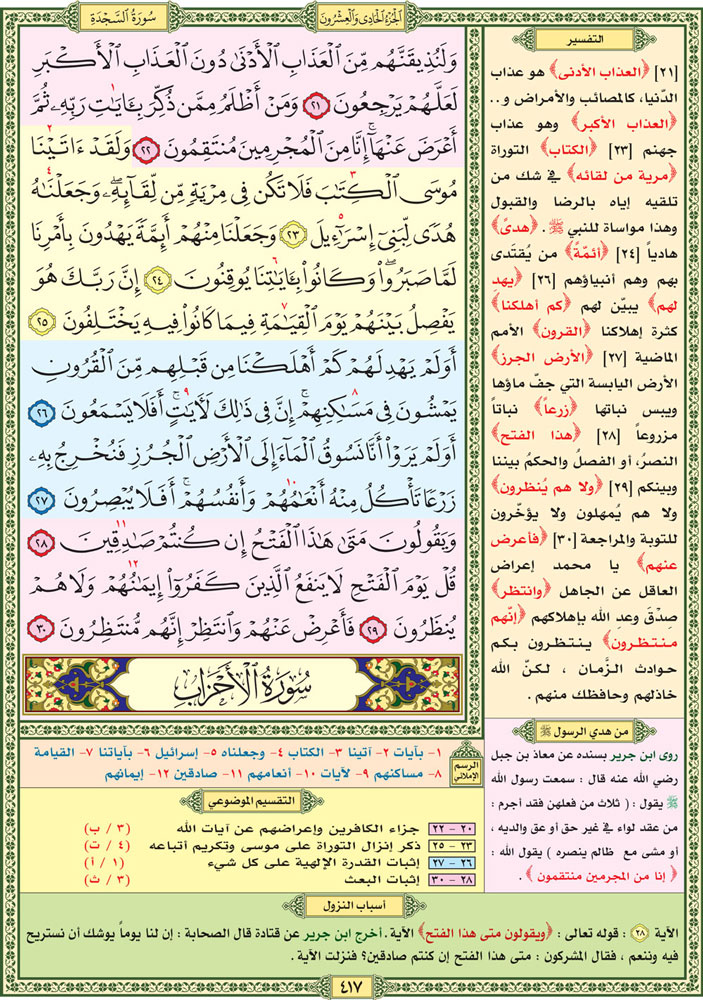 سُورَةُ السَّجْدَةِ
الجُزْءُ الحَادِي وَالعِشْرُونَ
وَلَنُذِيقَنَّهُم مِّنَ الْعَذَابِ الْأَدْنَىٰ دُونَ الْعَذَابِ الْأَكْبَرِ
لَعَلَّهُمْ يَرْجِعُونَ ٢١ وَمَنْ أَظْلَمُ مِمَّن ذُكِّرَ بِـَٔايَـٰتِ رَبِّهِۦ ثُمَّ
أَعْرَضَ عَنْهَآ ۚ إِنَّا مِنَ الْمُجْرِمِينَ مُنتَقِمُونَ ٢٢ وَلَقَدْ ءَاتَيْنَا
مُوسَى الْكِتَـٰبَ فَلَا تَكُن فِى مِرْيَةٍ مِّن لِّقَآئِهِۦ ۖ وَجَعَلْنَـٰهُ
هُدًى لِّبَنِىٓ إِسْرَٰٓءِيلَ ٢٣ وَجَعَلْنَا مِنْهُمْ أَئِمَّةً يَهْدُونَ بِأَمْرِنَا
لَمَّا صَبَرُوا۟ ۖ وَكَانُوا۟ بِـَٔايَـٰتِنَا يُوقِنُونَ ٢٤ إِنَّ رَبَّكَ هُوَ
يَفْصِلُ بَيْنَهُمْ يَوْمَ الْقِيَـٰمَةِ فِيمَا كَانُوا۟ فِيهِ يَخْتَلِفُونَ ٢٥
أَوَلَمْ يَهْدِ لَهُمْ كَمْ أَهْلَكْنَا مِن قَبْلِهِم مِّنَ الْقُرُونِ
يَمْشُونَ فِى مَسَـٰكِنِهِمْ ۚ إِنَّ فِى ذَٰلِكَ لَـَٔايَـٰتٍ ۖ أَفَلَا يَسْمَعُونَ ٢٦
أَوَلَمْ يَرَوْا۟ أَنَّا نَسُوقُ الْمَآءَ إِلَى الْأَرْضِ الْجُرُزِ فَنُخْرِجُ بِهِۦ
زَرْعًا تَأْكُلُ مِنْهُ أَنْعَـٰمُهُمْ وَأَنفُسُهُمْ ۖ أَفَلَا يُبْصِرُونَ ٢٧
وَيَقُولُونَ مَتَىٰ هَـٰذَا الْفَتْحُ إِن كُنتُمْ صَـٰدِقِينَ ٢٨
قُلْ يَوْمَ الْفَتْحِ لَا يَنفَعُ الَّذِينَ كَفَرُوٓا۟ إِيمَـٰنُهُمْ وَلَا هُمْ
يُنظَرُونَ ٢٩ فَأَعْرِضْ عَنْهُمْ وَانتَظِرْ إِنَّهُم مُّنتَظِرُونَ ٣٠
سُورَةُ الْأَحْزَابِ
التفسير
[٢١] ﴿العذاب الأدنى﴾ هو عذاب
الدّنيا، كالمصائب والأمراض و..
﴿العذاب الأكبر﴾ وهو عذاب
جهنم [٢٣] ﴿الكتاب﴾ التوراة
﴿مرية من لقائه﴾ في شك من
تلقيه إياه بالرضا والقبول
وهذا مواساة للنبي ﷺ. ﴿هدىً﴾
هادياً [٢٤] ﴿أئمّةً﴾ من يُقتَدى
بهم وهم أنبياؤهم [٢٦] ﴿يهد
لهم﴾ يبيّن لهم ﴿كم أهلكنا﴾
كثرة إهلاكنا ﴿القرون﴾ الأمم
الماضية [٢٧] ﴿الأرض الجرز﴾
الأرض اليابسة التي جفّ ماؤها
ويبس نباتها ﴿زرعاً﴾ نباتاً
مزروعاً [٢٨] ﴿هذا الفتح﴾
النصرُ، أو الفصلُ والحكمُ بيننا
وبينكم [٢٩] ﴿ولا هم يُنظرون﴾
ولا هم يُمهلون ولا يؤخّرون
للتوبة والمراجعة [٣٠] ﴿فأعرض
عنهم﴾ يا محمد إعراض
العاقل عن الجاهل ﴿وانتظر﴾
صدْقَ وعدِ الله بإهلاكهم ﴿إنّهم
منتظرون﴾ ينتظرون بكم
حوادث الزَّمان ، لكنّ الله
خاذلهم وحافظك منهم .
من هدي الرسول ﷺ
روى ابن جرير بسنده عن معاذ بن جبل
رضي الله عنه قال : سمعت رسول الله
ﷺ يقول : ( ثلاث من فعلهن فقد أجرم :
من عقد لواء في غير حق أو عق والديه ،
أو مشى مع ظالم ينصره ) يقول الله :
﴿ إنا من المجرمين منتقمون ﴾ .
الرسم الإملائي
١- بآيات ٢- آتينا ٣- الكتاب ٤- وجعلناه ٥- إسرائيل ٦- بآياتنا ٧- القيامة
٨- مساكنهم ٩- لآيات ١٠- أنعامهم ١١- صادقين ١٢- إيمانهم
التقسيم الموضوعي
٢٠ - ٢٢ جزاء الكافرين وإعراضهم عن آيات الله (٣ / ب)
٢٣ - ٢٥ ذكر إنزال التوراة على موسى وتكريم أتباعه (٤ / ت)
٢٦ - ٢٧ إثبات القدرة الإلهية على كل شيء (١ / أ)
٢٨ - ٣٠ إثبات البعث (٣ / ث)
أسباب النزول
الآية ٢٨ : قوله تعالى : ﴿ويقولون متى هذا الفتح﴾ الآية . أخرج ابن جرير عن قتادة قال الصحابة : إن لنا يوماً يوشك أن نستريح
فيه وننعم ، فقال المشركون : متى هذا الفتح إن كنتم صادقين؟ فنزلت الآية .
٤١٧